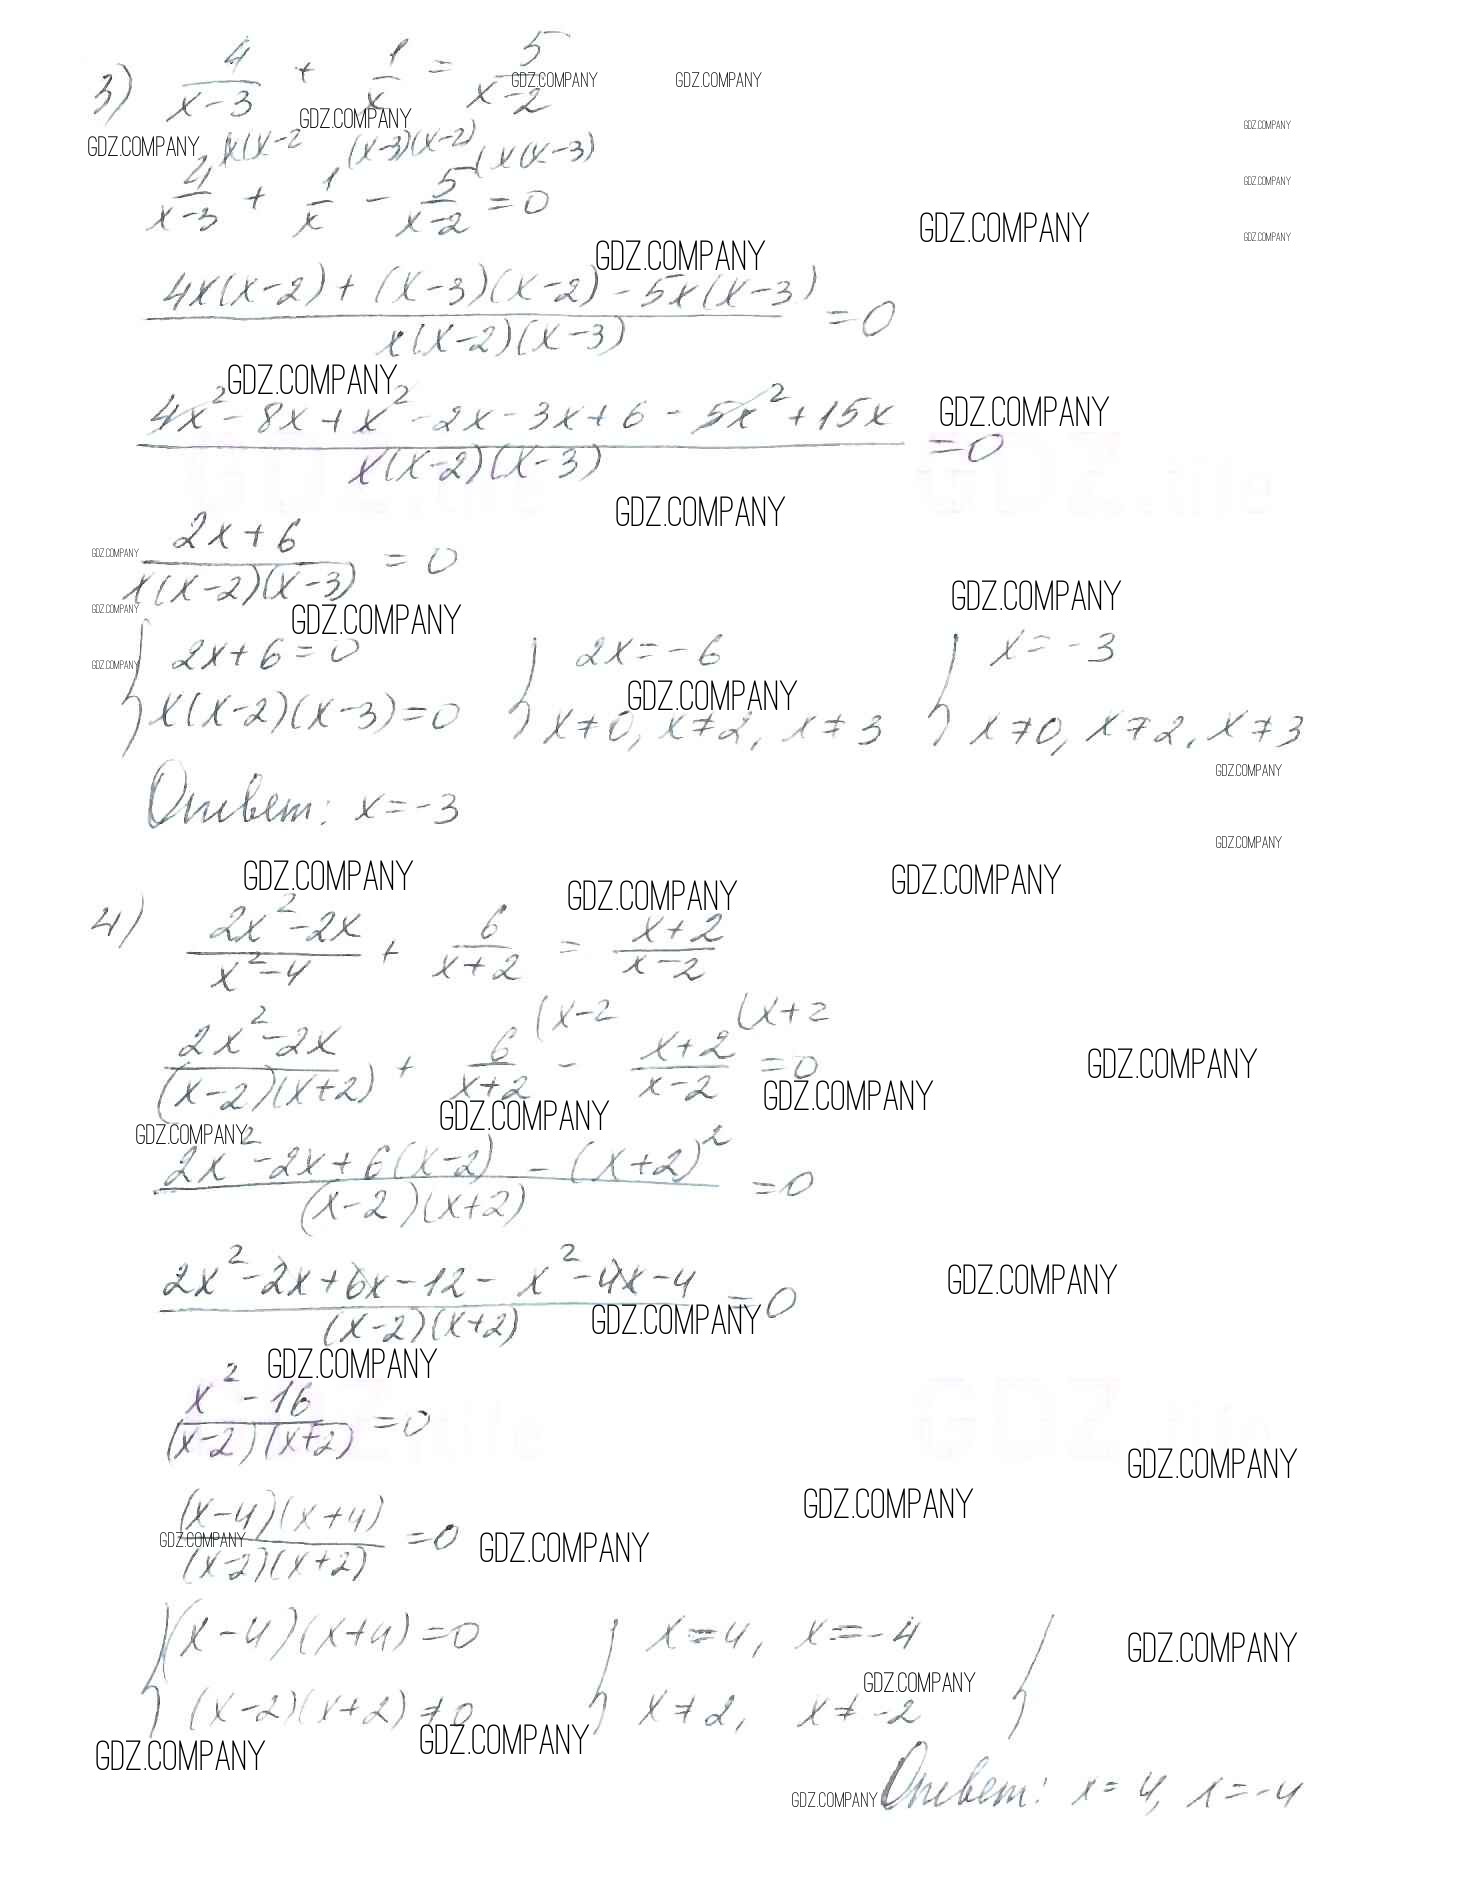 3) 4/(x-3) + 1/x = 5/(x-2)
GDZ.COMPANY GDZ.COMPANY
GDZ.COMPANY GDZ.COMPANY
GDZ.COMPANY x(x-2 (x-3)(x-2) (x(x-3)
4/(x-3) + 1/x - 5/(x-2) = 0
GDZ.COMPANY
GDZ.COMPANY
GDZ.COMPANY
GDZ.COMPANY
(4x(x-2) + (x-3)(x-2) - 5x(x-3))/(x(x-2)(x-3)) = 0
GDZ.COMPANY
GDZ.COMPANY
(4x² - 8x + x² - 2x - 3x + 6 - 5x² + 15x)/(x(x-2)(x-3)) = 0
GDZ.COMPANY
(2x + 6)/(x(x-2)(x-3)) = 0
GDZ.COMPANY
GDZ.COMPANY
GDZ.COMPANY GDZ.COMPANY
{ 2x + 6 = 0 { 2x = -6 { x = -3
GDZ.COMPANY GDZ.COMPANY
x(x-2)(x-3) = 0 x ≠ 0, x ≠ 2, x ≠ 3 x ≠ 0, x ≠ 2, x ≠ 3
GDZ.COMPANY
Ответ: x = -3
GDZ.COMPANY
GDZ.COMPANY GDZ.COMPANY GDZ.COMPANY
4) (2x² - 2x)/(x² - 4) + 6/(x+2) = (x+2)/(x-2)
(x-2 (x+2
(2x² - 2x)/((x-2)(x+2)) + 6/(x+2) - (x+2)/(x-2) = 0
GDZ.COMPANY
GDZ.COMPANY
GDZ.COMPANY GDZ.COMPANY
(2x² - 2x + 6(x-2) - (x+2)²)/((x-2)(x+2)) = 0
(2x² - 2x + 6x - 12 - x² - 4x - 4)/((x-2)(x+2)) = 0
GDZ.COMPANY
GDZ.COMPANY
GDZ.COMPANY
(x² - 16)/((x-2)(x+2)) = 0
GDZ.COMPANY
GDZ.COMPANY
((x-4)(x+4))/((x-2)(x+2)) = 0
GDZ.COMPANY GDZ.COMPANY
{ (x-4)(x+4) = 0 { x = 4, x = -4 {
GDZ.COMPANY
GDZ.COMPANY
(x-2)(x+2) ≠ 0 x ≠ 2, x ≠ -2
GDZ.COMPANY GDZ.COMPANY
GDZ.COMPANY Ответ: x = 4, x = -4